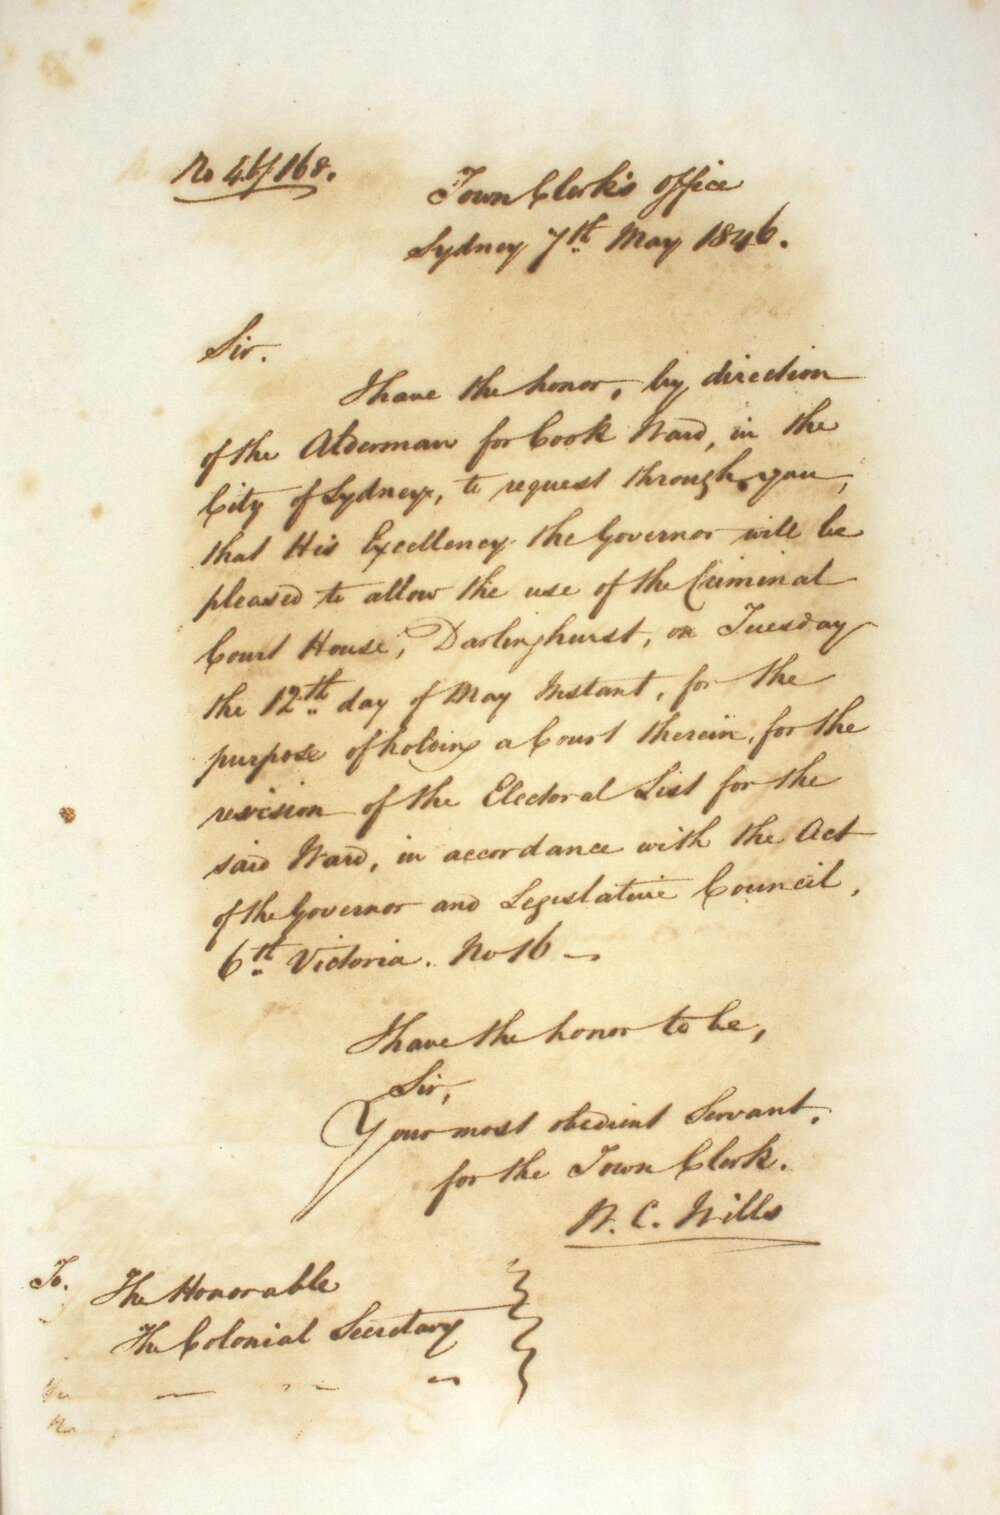 No 46/168.
Town Clerk's Office
Sydney 7th May 1846.
Sir.
I have the honor, by direction
of the Alderman for Cook Ward, in the
City of Sydney, to request through you,
that His Excellency the Governor will be
pleased to allow the use of the Criminal
Court House, Darlinghurst, on Tuesday
the 12th day of May Instant, for the
purpose of holding a Court therein, for the
revision of the Electoral List for the
said Ward, in accordance with the Act
of the Governor and Legislative Council,
6th Victoria. No 16 —
I have the honor to be,
Sir,
Your most obedient Servant,
for the Town Clerk.
W. C. Wills
To. The Honorable
The Colonial Secretary